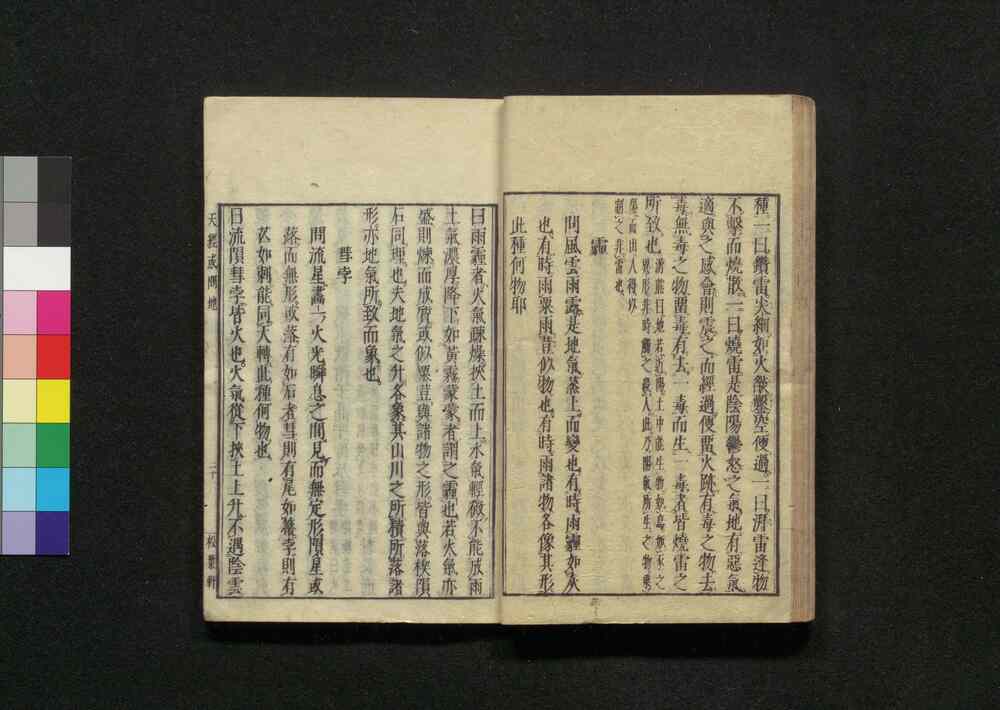 種一曰鑽雷尖細如火鑽鑿空便過一曰漰雷逢物
不擊而燒散一曰燒雷是陰陽鬱怒之氣地有惡氣
適與之感會則震之而經過便畱火跡有毒之物去
毒無毒之物畱毒有去一毒而生一毒者皆燒雷之
所致也
霾
問風雲雨露是地氣蒸上而變也有時雨霾如灰
也有時雨粟雨荳似物也有時雨諸物各像其形
此種何物耶
曰雨霾者火氣疎燥挾土而上水氣輕微不能成雨
土氣濃厚降下如黃霧蒙蒙者謂之霾也若火氣亦
盛則煉而成質或似粟荳與諸物之形皆與落楔隕
石同理也夫地氣之升各象其山川之所積所落諸
形亦地氣所致而象也
彗孛
問流星畵一火光瞬息之間見而無定形隕星或
落而無形或落有如石者彗則有尾如箒孛則有
芒如刺能同天轉此種何物也
曰流隕彗孛皆火也火氣從下挾土上升不遇陰雲
天經或問地
二十
松葉軒